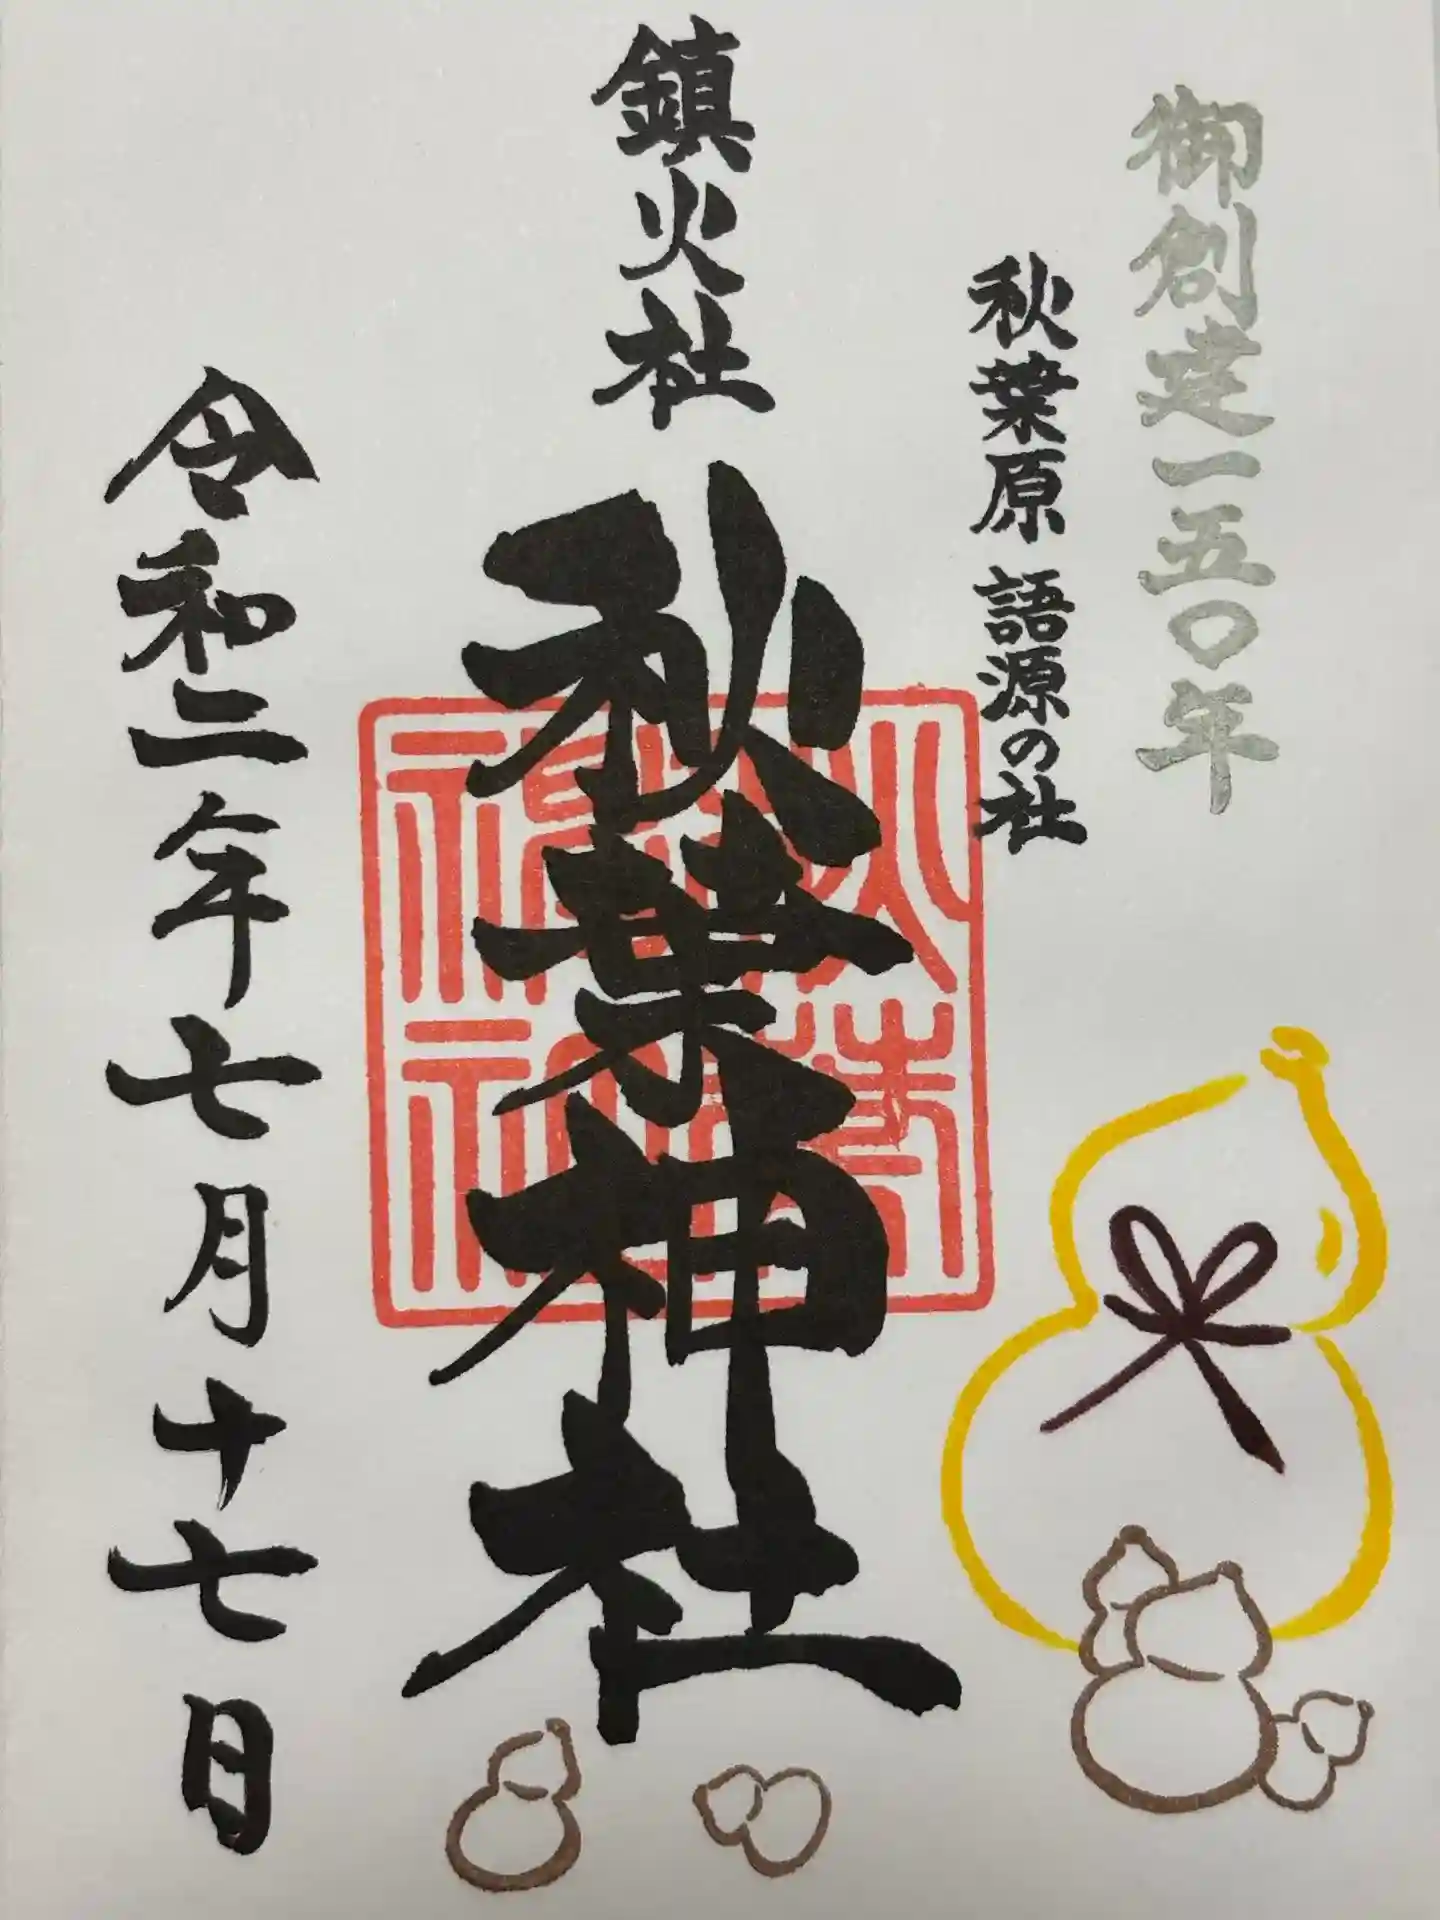 御創建一五〇年
秋葉原 語源の社
鎮火社
秋葉神社
令和二年七月十七日